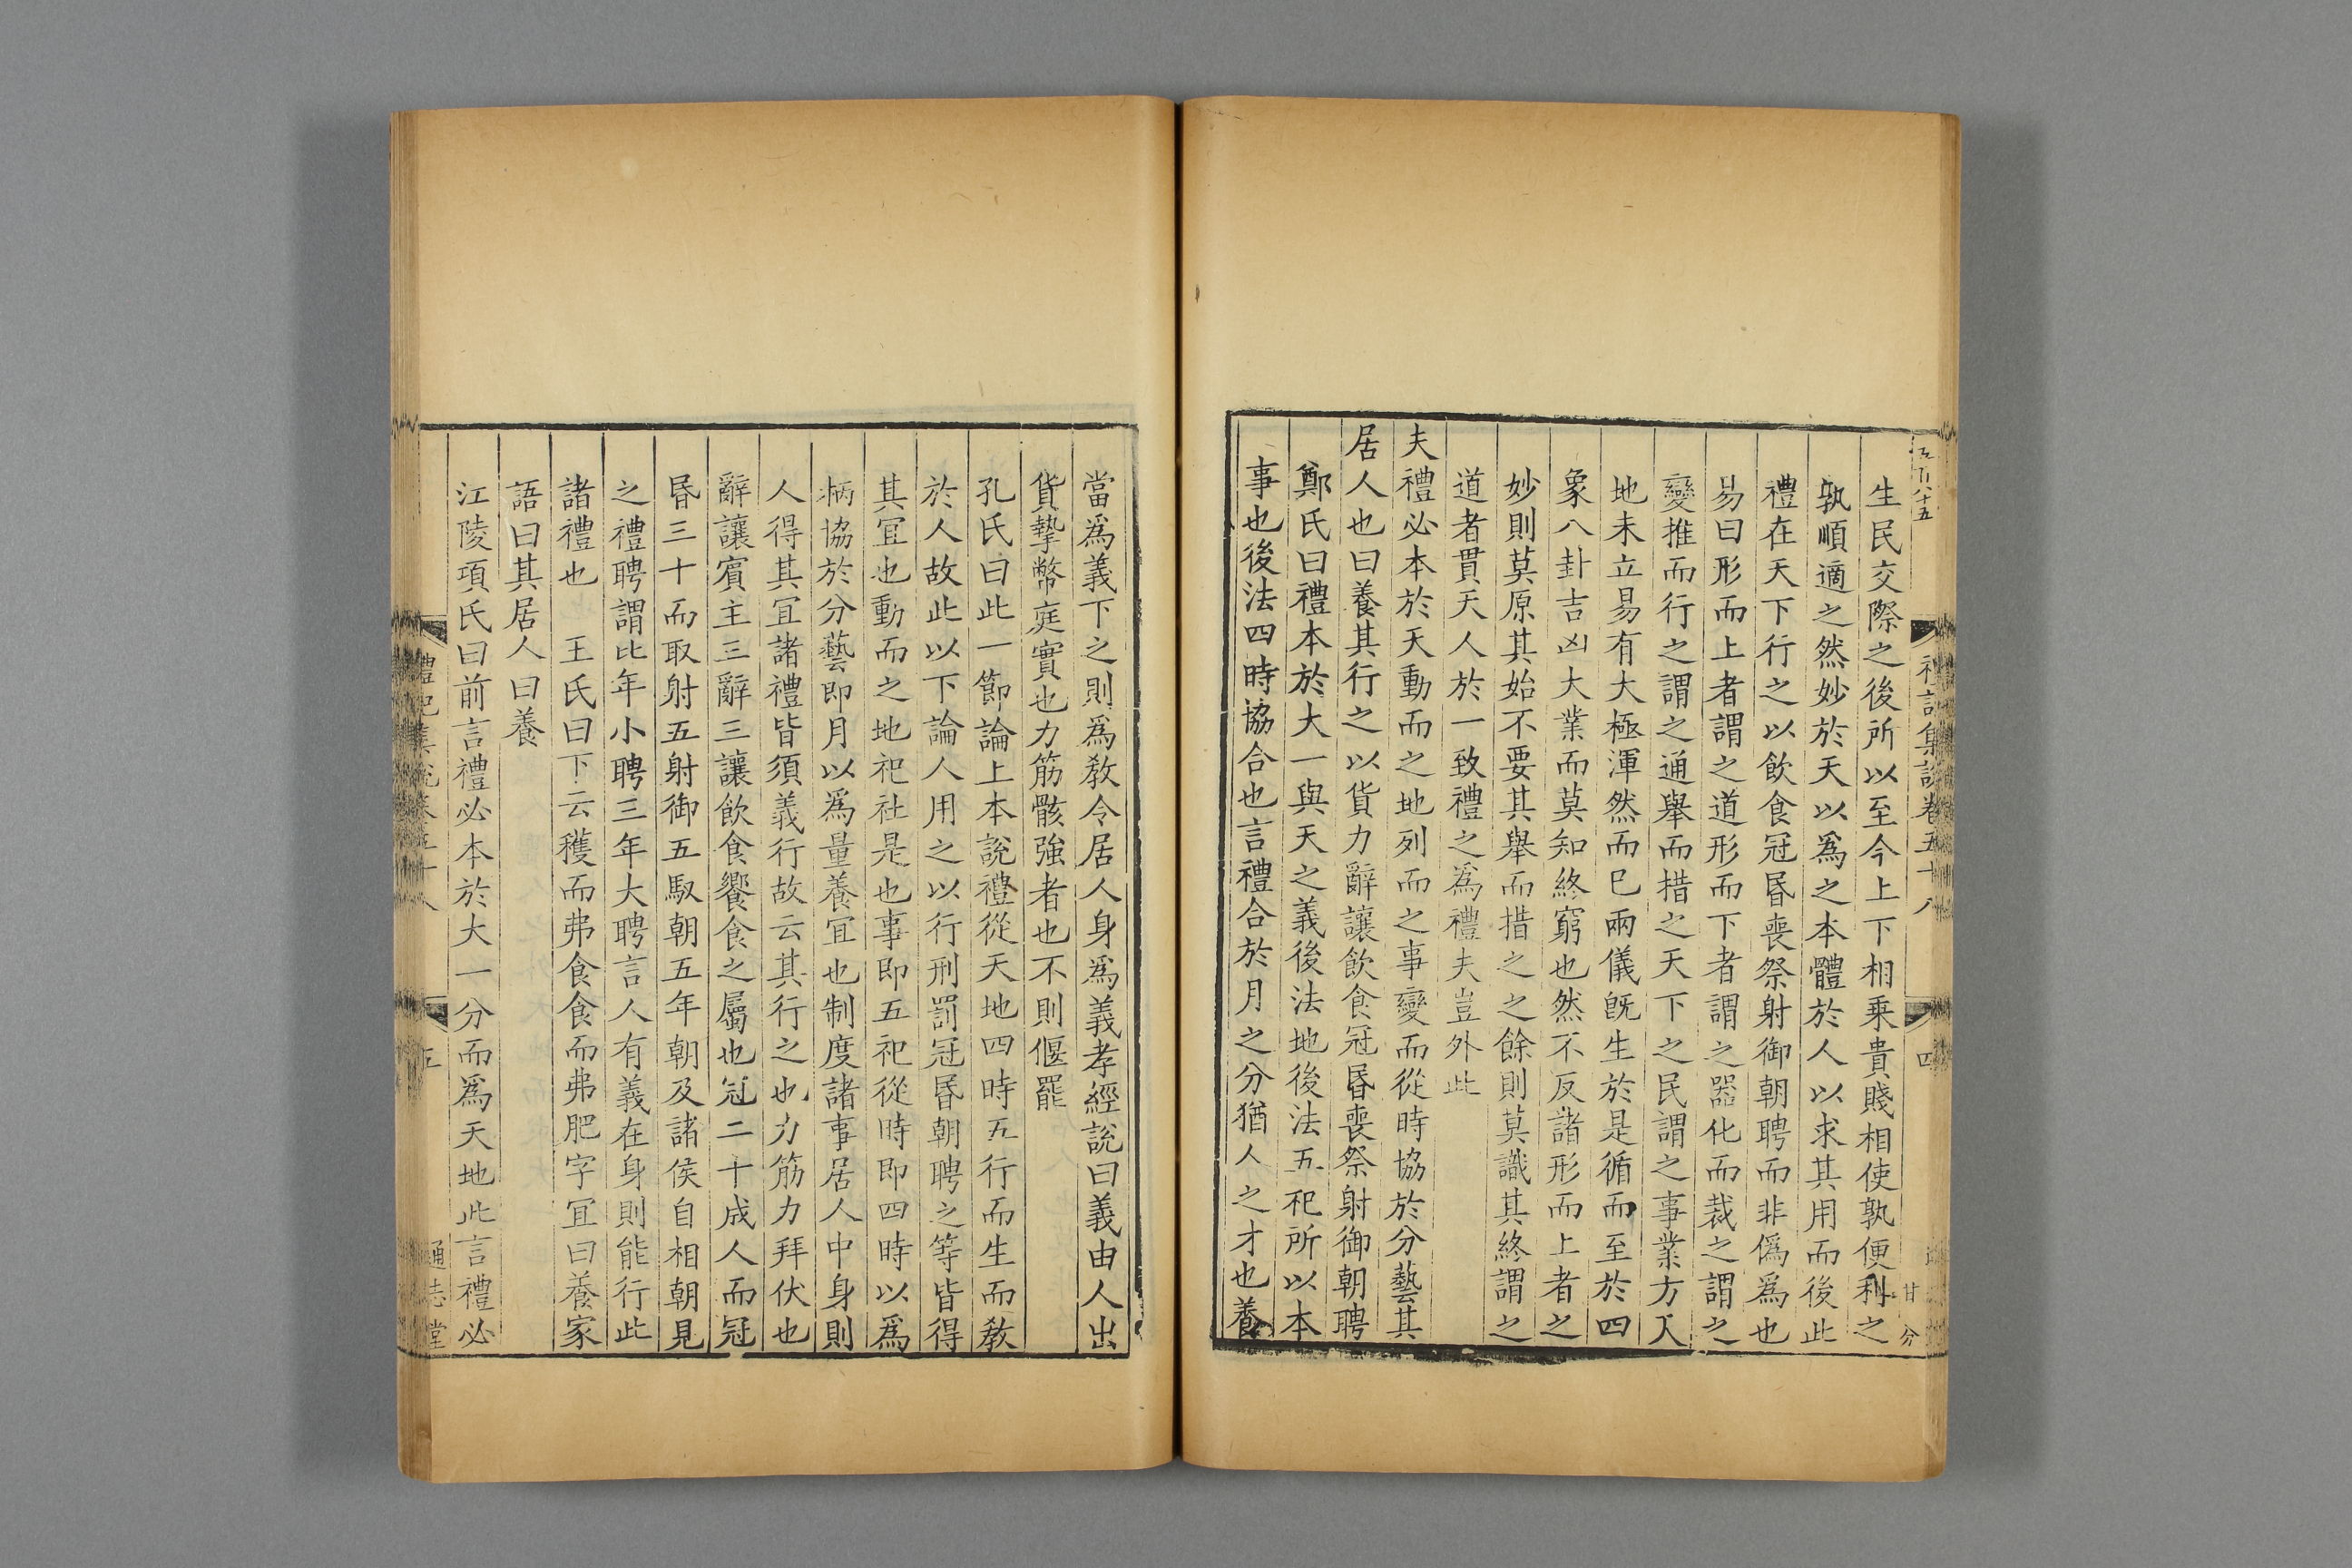 生民交際之後所以至今上下相乗貴賤相使孰便利之
孰順適之然妙於天以爲之本體於人以求其用而後此
禮在天下行之以飲食冠昏喪祭射御朝聘而非僞爲也
易曰形而上者謂之道形而下者謂之器化而裁之謂之
變推而行之謂之通舉而措之天下之民謂之事業方人
地未立易有大極渾然而巳兩儀旣生於是循而至於四
象八卦吉凶大業而莫知終窮也然不反諸形而上者之
妙則莫原其始不要其舉而措之之餘則莫識其終謂之
道者貫天人於一致禮之爲禮夫豈外此
夫禮必本於天動而之地列而之事變而從時協於分藝其
居人也曰養其行之以貨力辭讓飲食冠昏喪祭射御朝聘
鄭氏曰禮本於大一與天之義後法地後法五祀所以本
事也後法四時協合也言禮合於月之分猶人之才也養
當爲義下之則爲教令居人身爲義孝經說曰義由人出
貨摯幣庭實也力筋骸強者也不則偃罷
孔氏曰此一節論上本說禮從天地四時五行而生而教
於人故此以下論人用之以行刑罰冠昏朝聘之等皆得
其宜也動而之地祀社是也事即五祀從時即四時以爲
柄協於分藝即月以爲量養宜也制度諸事居人中身則
人得其宜諸禮皆須義行故云其行之也力筋力拜伏也
辭讓賓主三辭三讓飲食饗食之屬也冠二十成人而冠
昏三十而取射五射御五馭朝五年朝及諸侯自相朝見
之禮聘謂比年小聘三年大聘言人有義在身則能行此
諸禮也　王氏曰下云穫而弗食食而弗肥字宜曰養家
語曰其居人曰養
江陵項氏曰前言禮必本於大一分而爲天地此言禮必
五百八十五
禮記集說卷五十八
四
甘
分
禮記集說卷五十八
五
通志堂